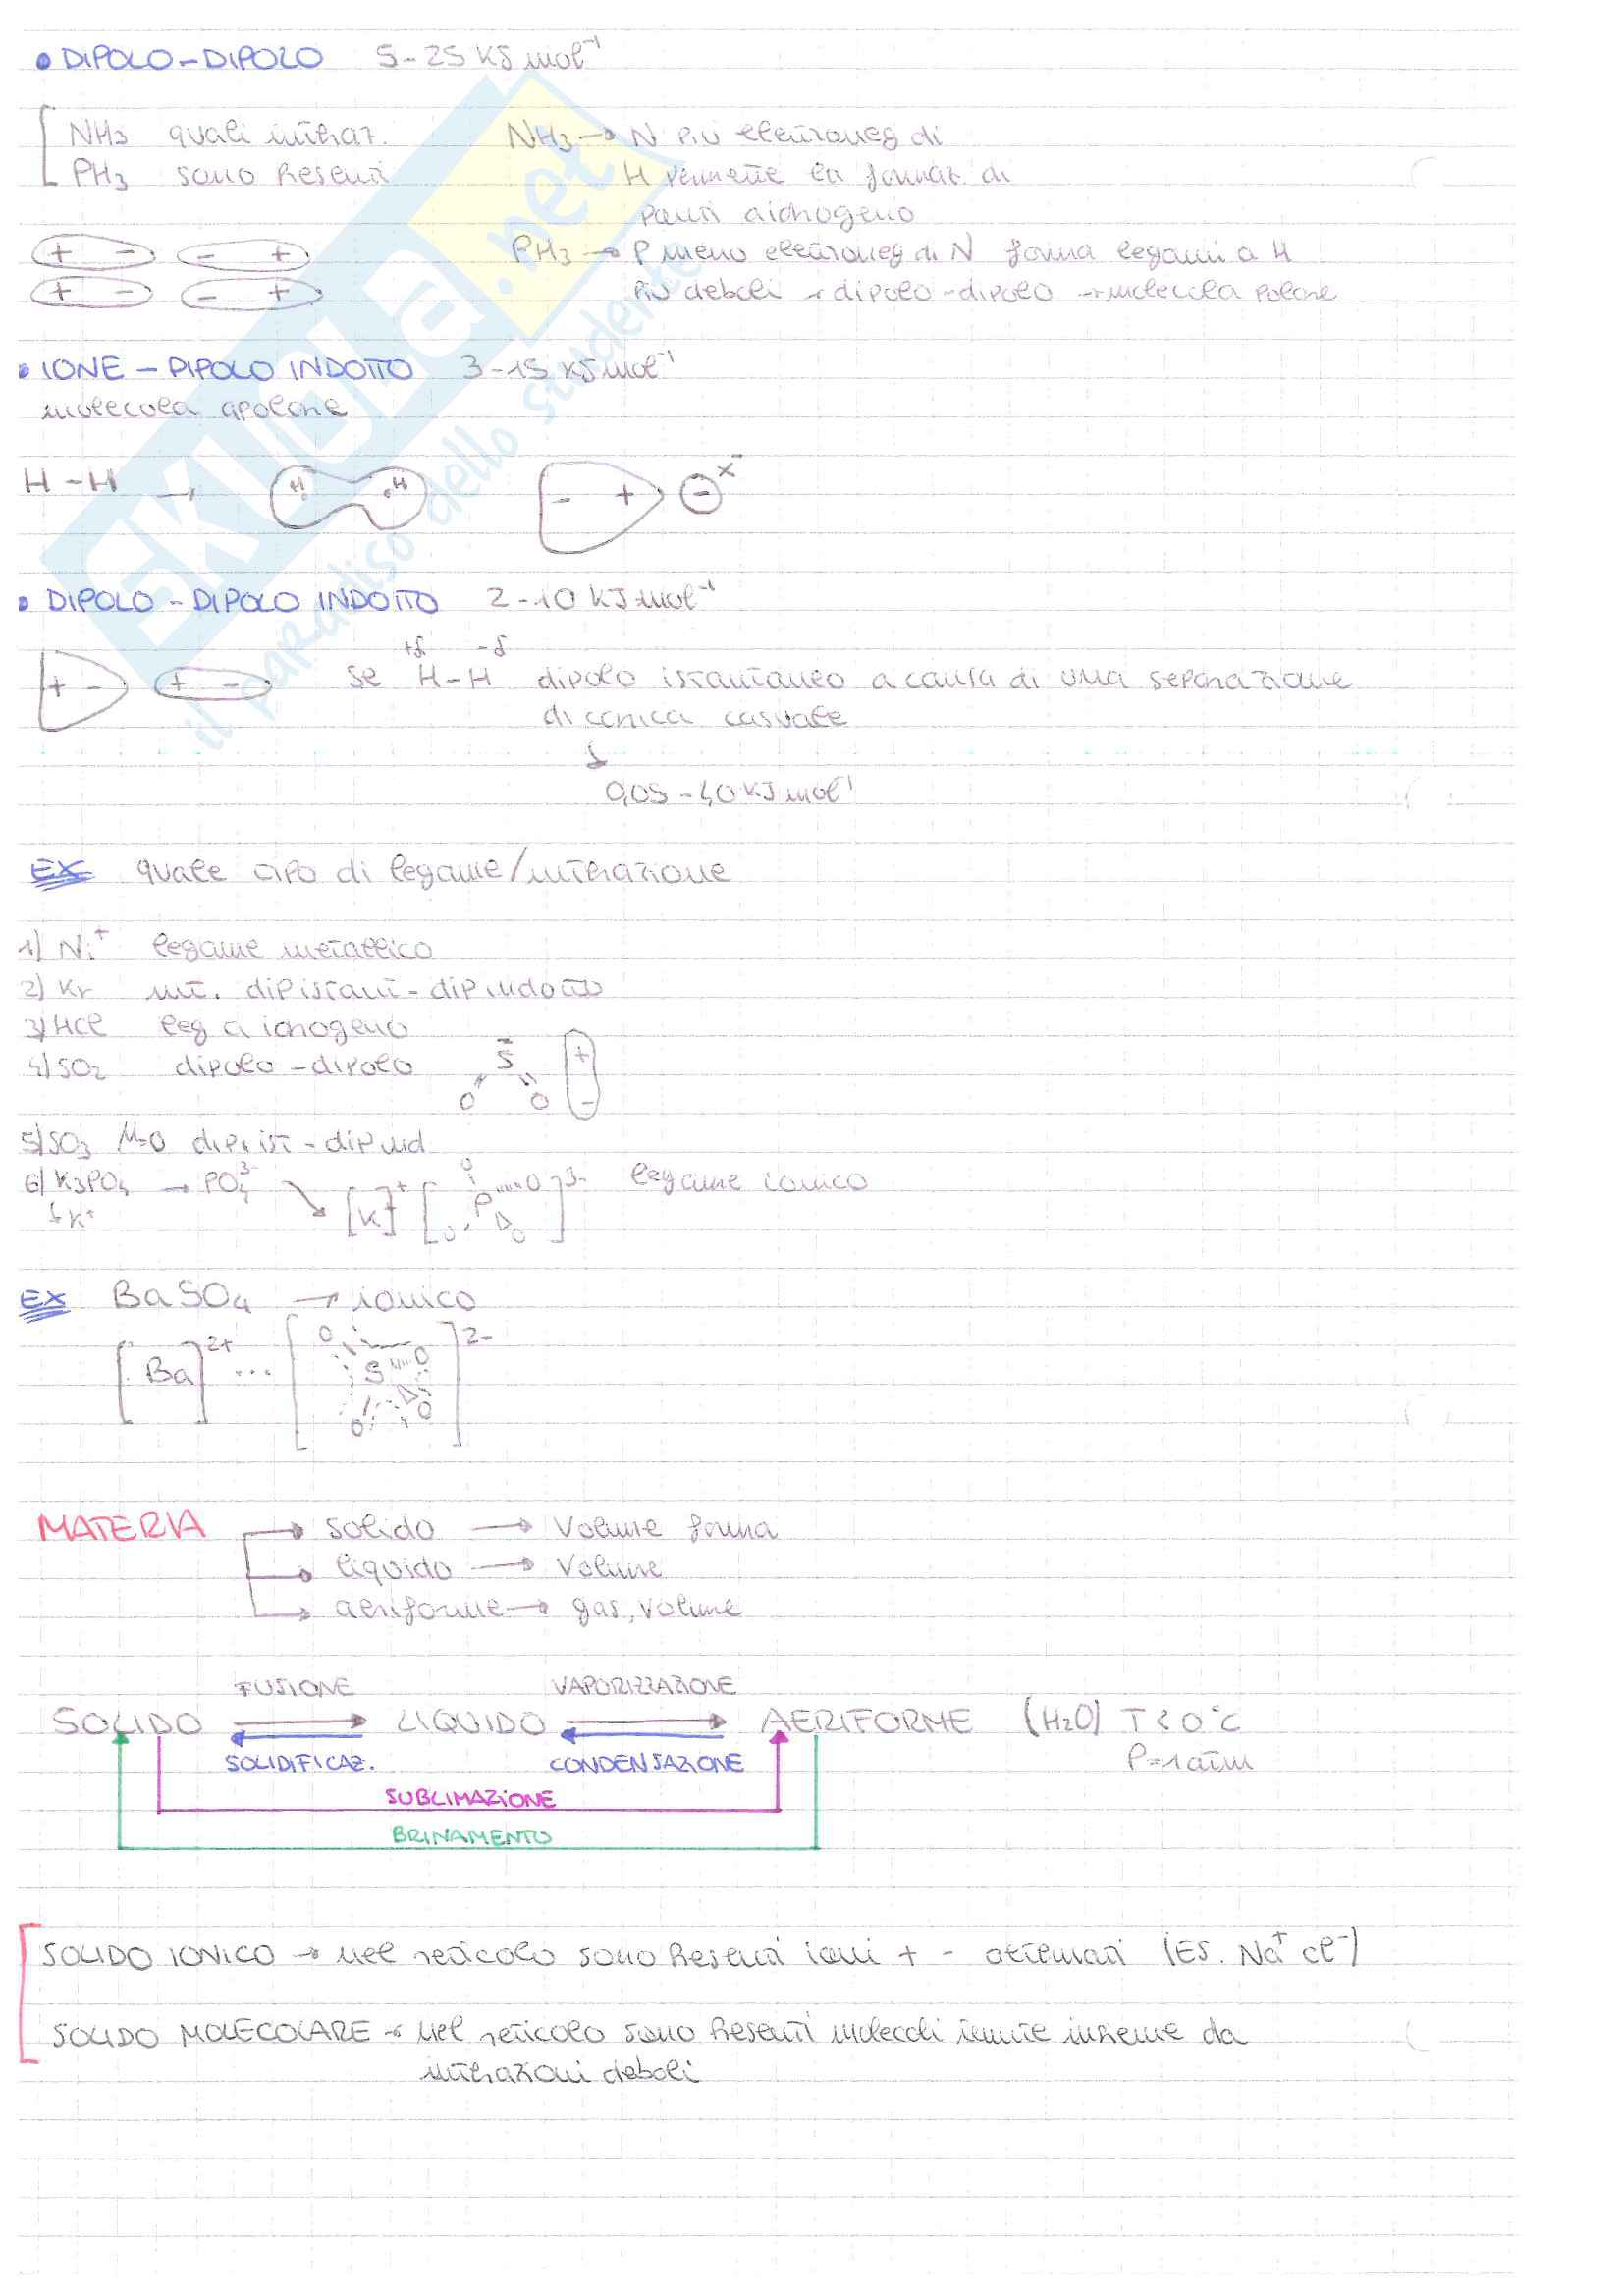 • DIPOLO-DIPOLO 5-25 KJ mol⁻¹
NH3 quali interaz.
PH3 sono presenti
NH3 → N più elettroneg di
H permette la formaz. di
ponti a idrogeno
PH3 → P meno elettroneg di N forma legami a H
più deboli → dipolo-dipolo → molecola polare
+ - - +
+ - - +
• IONE - DIPOLO INDOTTO 3-15 KJ mol⁻¹
molecola apolare
H-H → H H - + - X⁻
• DIPOLO - DIPOLO INDOTTO 2-10 KJ mol⁻¹
+δ -δ
+ - + - se H-H dipolo istantaneo a causa di una separazione
di carica casuale
↓
0,05 - 40 KJ mol⁻¹
EX quale tipo di legame/interazione
1) Ni⁺ legame metallico
2) Kr int. dip istant - dip indotto
3) HCl leg a idrogeno
4) SO2 dipolo-dipolo S O O + -
5) SO3 μ=0 dip. ist - dip ind
6) K3PO4 → PO4³⁻ [K]⁺ [P O O O O]³⁻ legame ionico
↳ K⁺
EX BaSO4 → ionico
[Ba]²⁺ ... [S O O O O]²⁻
MATERIA → solido → Volume forma
→ liquido → Volume
→ aeriforme → gas, volume
FUSIONE VAPORIZZAZIONE
SOLIDO LIQUIDO AERIFORME (H2O) T < 0°C
SOLIDIFICAZ. CONDENSAZIONE P=1atm
SUBLIMAZIONE
BRINAMENTO
SOLIDO IONICO → nel reticolo sono presenti ioni + - alternati (ES. Na⁺ Cl⁻)
SOLIDO MOLECOLARE → nel reticolo sono presenti molecoli tenute insieme da
interazioni deboli
SKUOLA.net
il paradiso dello studente